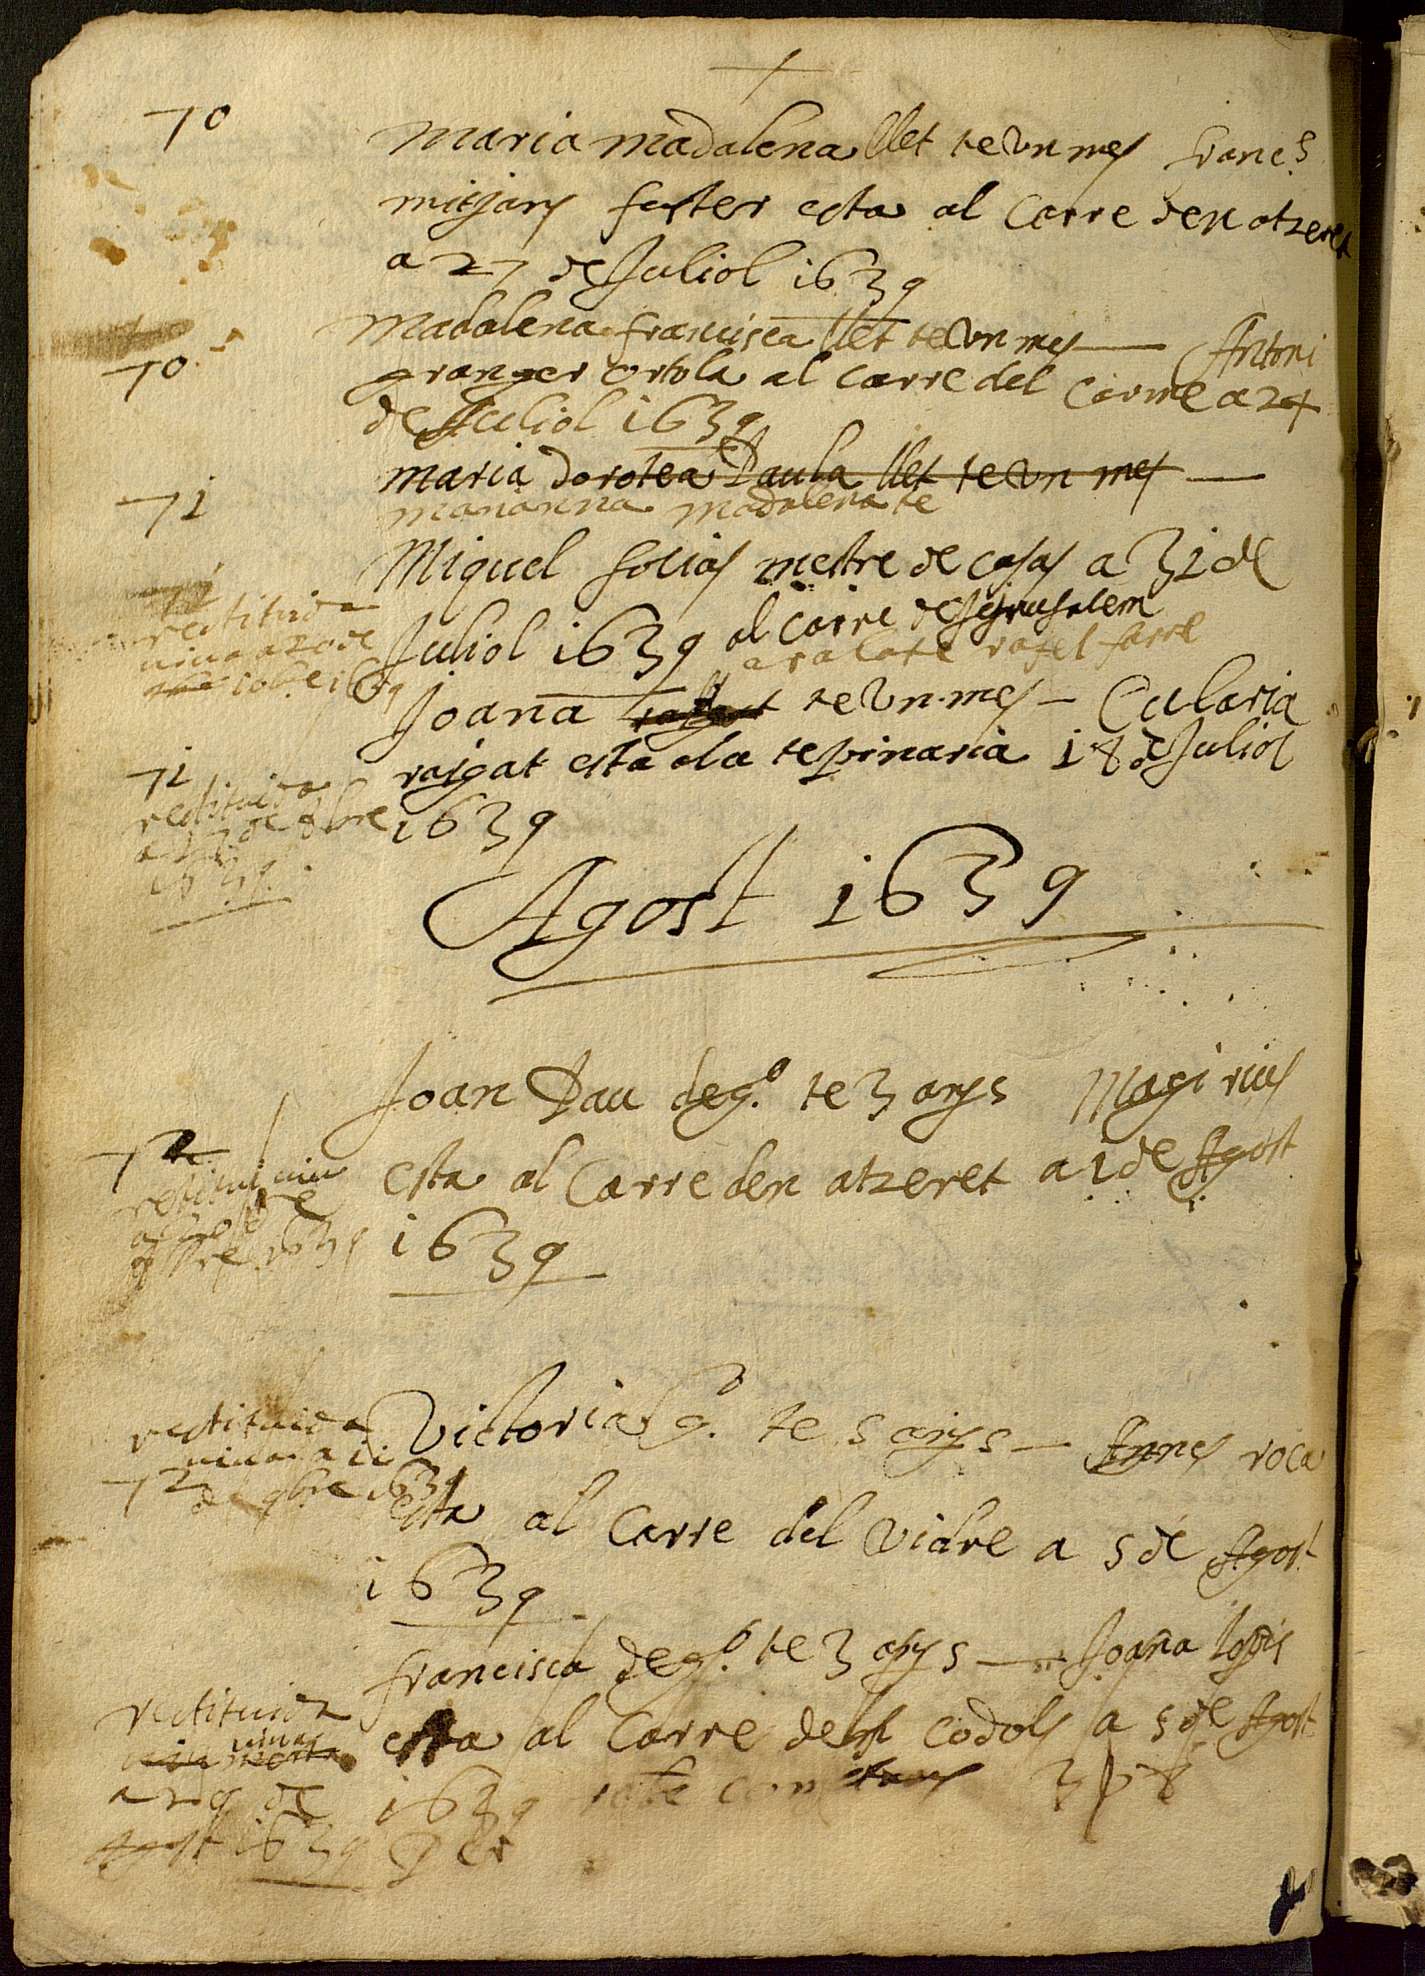 70
Maria Madalena llet te un mes franc.s
mitjans fuster esta al Carre den atzeret
a 27 de Juliol 1639
70
Madalena francisca llet te un mes — Antoni
granger ortola al Carre del Carme a 24
de Juliol 1639
71
maria dorotea Paula llet te un mes —
marianna madalena te
Miquel solias mestre de casas a 31 de
Juliol 1639 al Carre de Jerusalem
ara la te rafel farre
restituida
viva a 20 de
1639
Joana te un mes — Eularia
rasgat esta a la tepinaria 18 de Juliol
1639
71
restituida
Agost 1639
Joan Pau deg.o te 3 anys Magi rius
esta al Carre den atzeret a 1 de Agost
1639
72
restitui viu
Victoria g.o te 5 anys — Agnes roca
esta al Carre del Vidre a 5 de Agost
1639
restituida
viva a 11
72
de 9bre 1639
francisca deg.o te 3 anys — Joana
esta al Carre dels codols a 5 de Agost
1639
restituida
viva
morta
a 29 de
Agost 1639